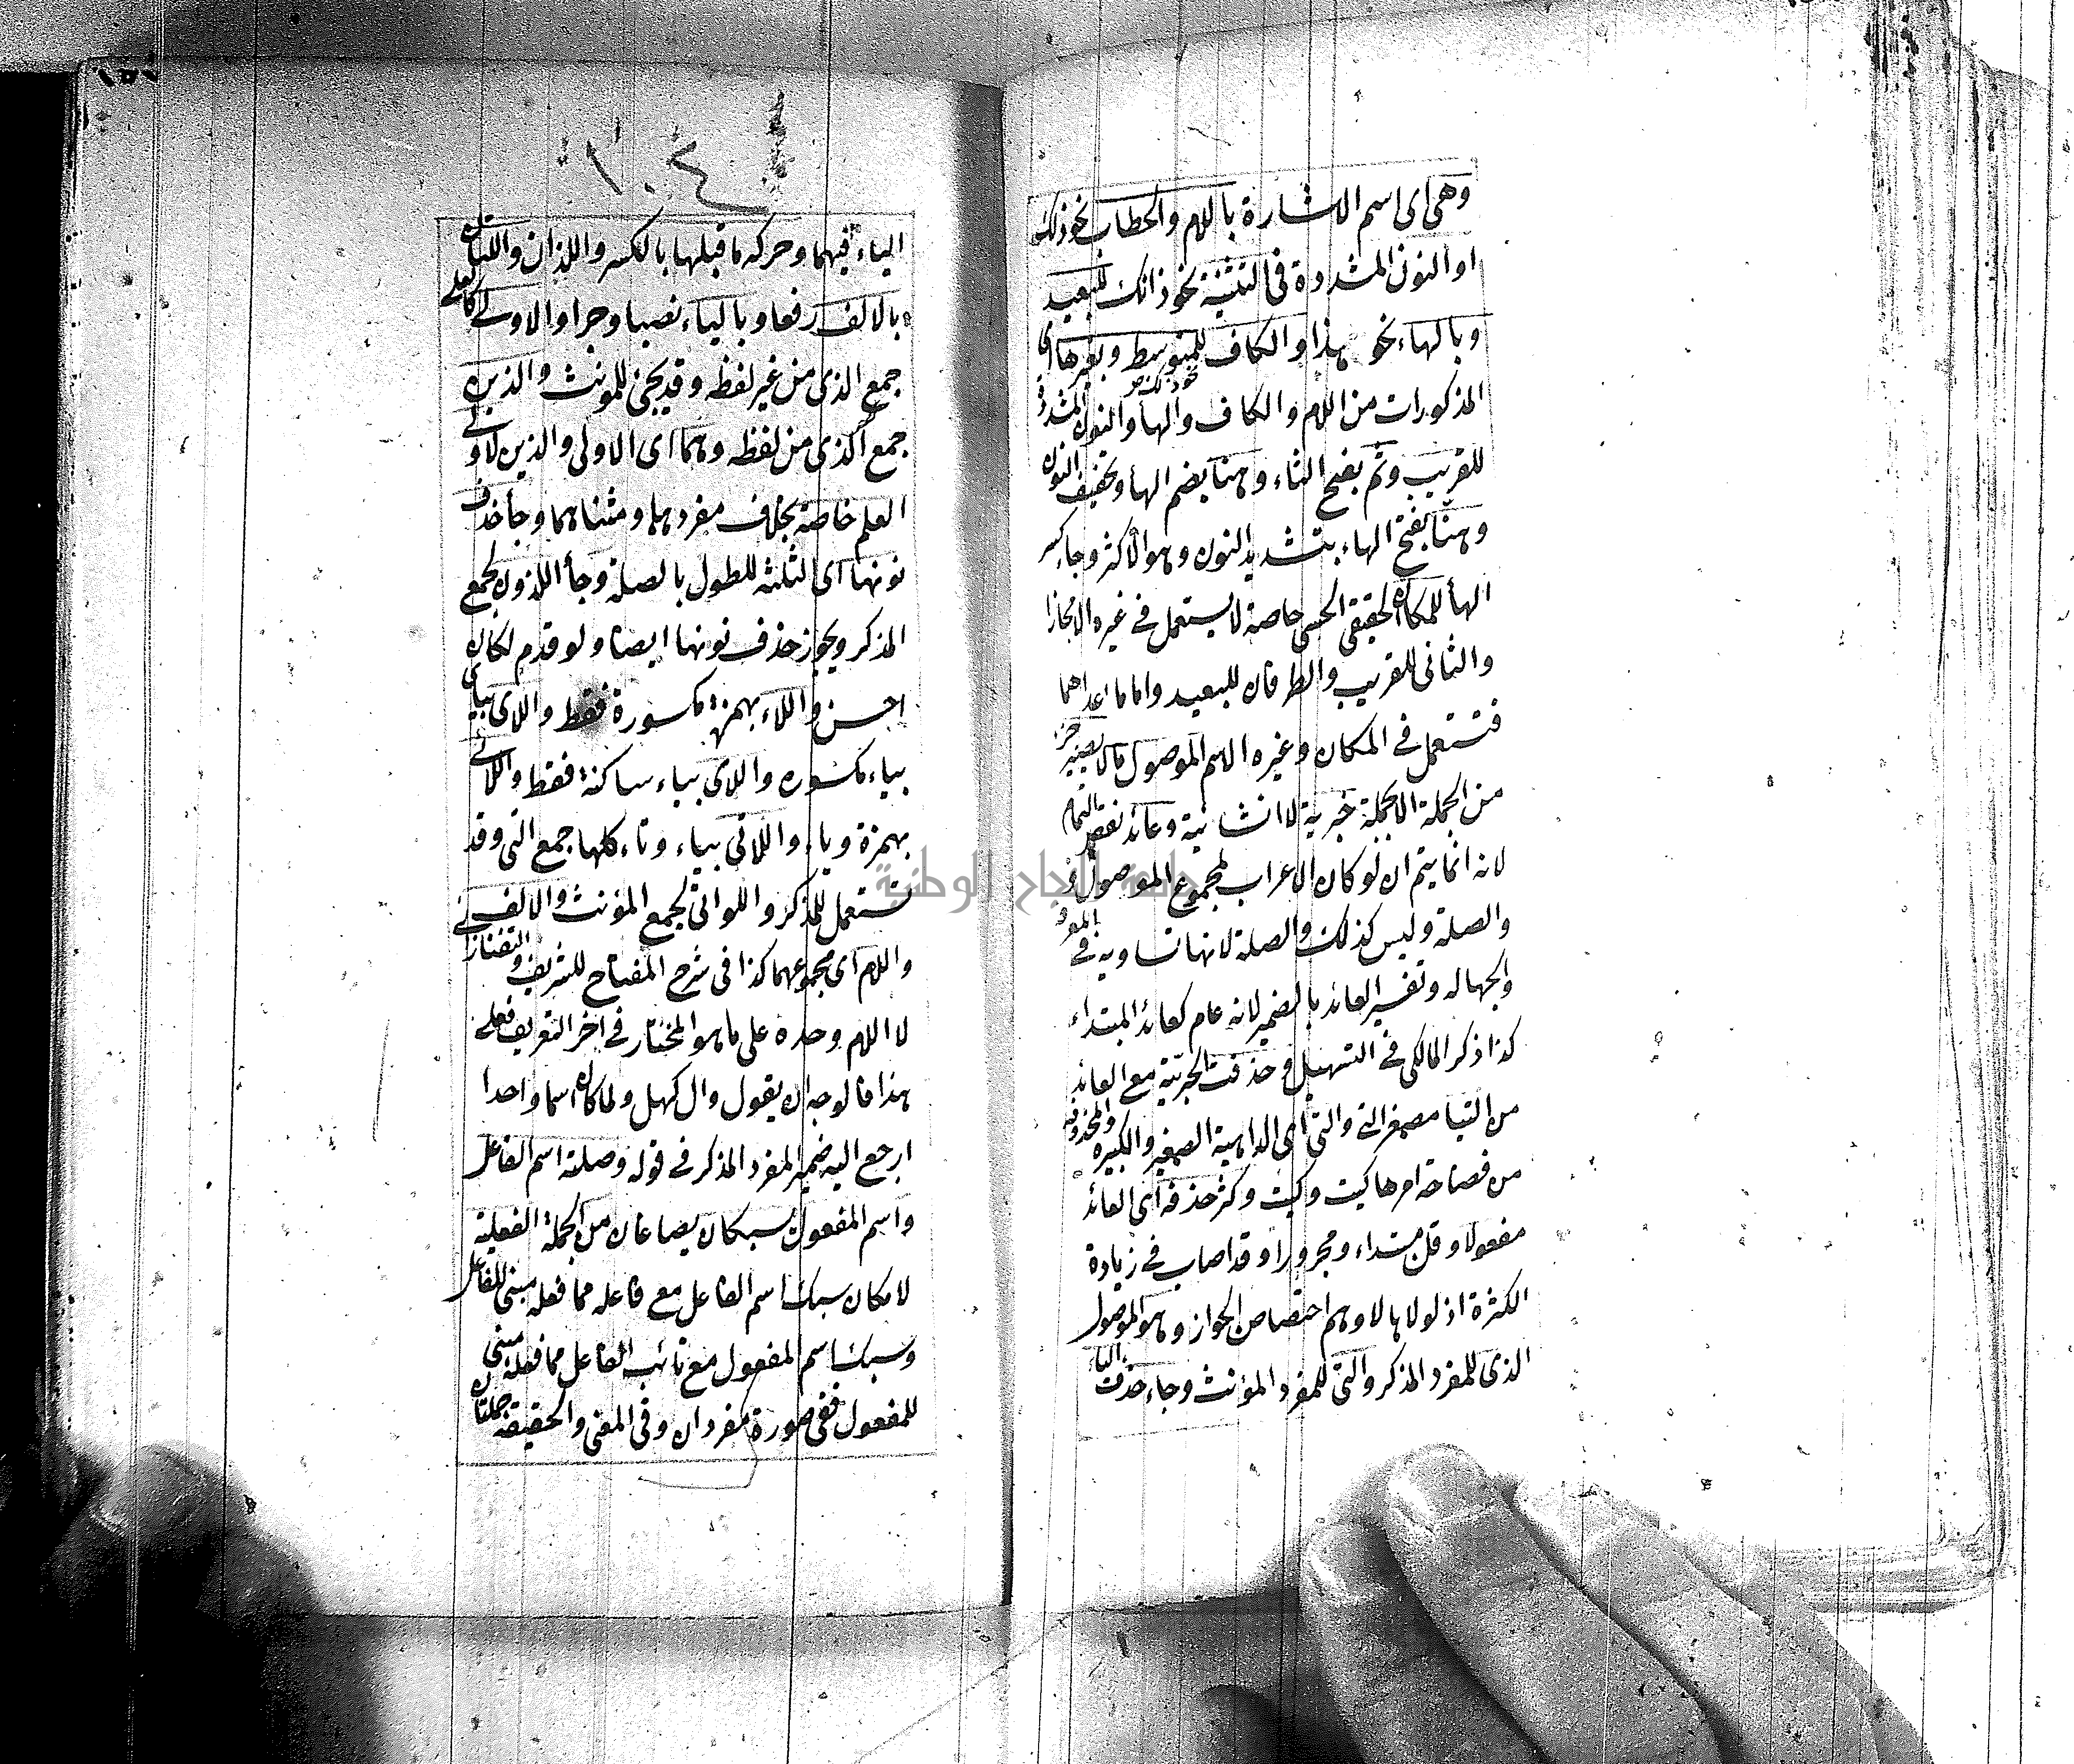 وهى اى اسم الاشارة باللام والخطاب نحو ذلك
او النون المشددة فى التثنية نحو ذانك للبعيد
وبالهاء نحو هذا والكاف للمتوسط وبغيرها اى
المذكورات من اللام والكاف والهأ والنون المشددة
للقريب وثم بفتح الثاء وهنا بضم الهأ وتخفيف النون
وهنّا بفتح الهاء بتشديد النون وهو الأكثر وجا كسر
الهأ للمكان الحقيقى الحسى خاصة لا يستعمل فى غيره الا مجازا
والثانى للقريب والطرفان للبعيد واما ما عداهما
فتستعمل فى المكان وغيره الاسم الموصول ما لا يصير جزء
من الجملة الا بجملة خبرية لا انشائية وعائد نقص التمام
لانه انما يتم ان لو كان الاعراب لمجموع الموصول
والصلة وليس كذلك والصلة لانها تساويه فى
والجهاله وتفسير العائد بالضمير لانه عام كعائد المبتداء
كذا ذكر المالكى فى التسهيل وحذفت الخبريّة مع العائد
من اللتيا مصغر التى والتى اى الداهية الصغير والكبيره والمحذوفه
من فصاحة امرها كيت وكيت وكثر حذفه اى العائد
مفعولا وقل مبتداء ومجرورا وقد اصاب فى زيادة
الكثرة اذ لولاها لاوهم اختصاص الجواز وهو الموصول
الذى للمفرد المذكر والتى للمفرد المؤنث وجاء حذف الياء
١٠٤
الياء فيهما وحركة ما قبلها بالكسر واللذان واللتان
بالالف رفعا وبالياء نصبا وجرا والاولى كالعلى
جمع الذى من غير لفظه وقد يجئ للمونث والذين
جمع الذى من لفظه وهما اى الاولى والذين لاولى
العلم خاصة بخلاف مفردهما ومثناهما وجأ حذف
نونها اى الثلثه للطول بالصلة وجأ اللذون لجمع
المذكر ويجوز حذف نونها ايضا ولو قدم لكان
احسن واللاء بهمزة مكسورة فقط واللاى بياى
بياء مكسوره واللاى بياء ساكنة فقط واللائى
بهمزة وياء واللاتى بياء وتاء كلها جمع التى وقد
تستعمل للمذكر واللواتى لجمع المؤنث والالف
واللام اى مجموعهما كذا فى شرح المفتاح للشريف والتفتازانى
لا اللام وحده على ما هو المختار فى اخر التعريف فعلى
هذا فالوجه ان يقول وال كهل ولما كان اسما واحدا
ارجع اليه ضمير المفرد المذكر فى قوله وصلته اسم الفاعل
واسم المفعول يسبكان يصاغان من الجملة الفعلية
لامكان سبك اسم الفاعل مع فاعله مما فعله مبنى للفاعل
وسبك اسم المفعول مع نائب الفاعل مما فعله مبنى
للمفعول ففى صورة مفردان وفى المعنى والحقيقة جملتان
جامعة النجاح الوطنية